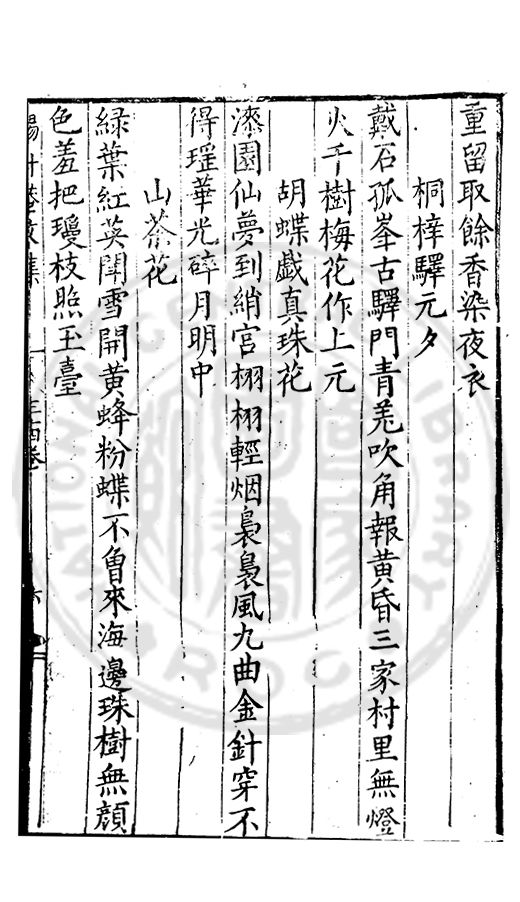 重留取餘香染夜衣
桐梓驛元夕
戴石孤峯古驛門青羌吹角報黃昏三家村里無燈
火千樹梅花作上元
胡蝶戯真珠花
漆園仙夢到綃宮栩栩輕烟裊裊風九曲金針穿不
得瑶華光碎月明中
山茶花
綠葉紅英鬭雪開黃蜂粉蝶不曾來海邊珠樹無顔
色羞把瓊枝照玉臺